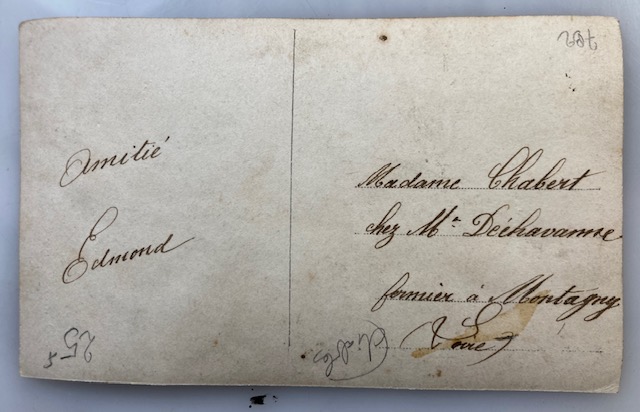 Amitié
Edmond
Madame Chabert
chez Mr Déchavanne
fermier à Montagny
(Loire)
25